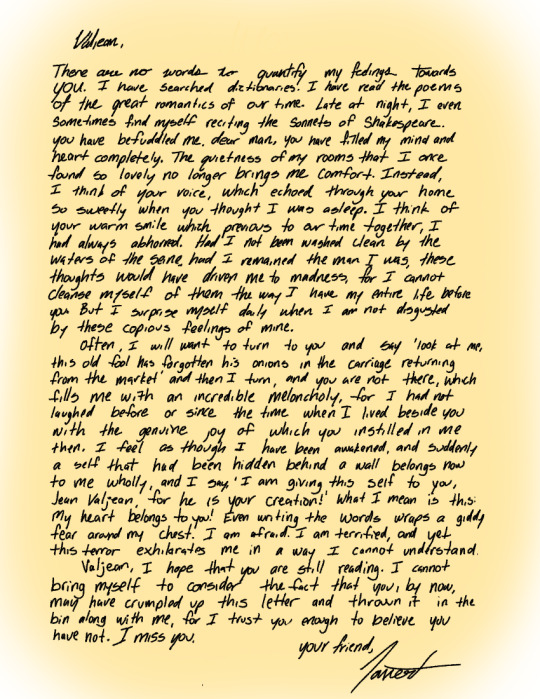 Valjean,
There are no words to quantify my feelings towards
you. I have searched dictionaries. I have read the poems
of the great romantics of our time. Late at night, I even
sometimes find myself reciting the sonnets of Shakespeare.
you have befuddled me, dear man, you have filled my mind and
heart completely. The quietness of my rooms that I once
found so lovely no longer brings me comfort. Instead,
I think of your voice, which echoed through your home
so sweetly when you thought I was asleep. I think of
your warm smile which previous to our time together, I
had always abhored. Had I not been washed clean by the
waters of the seine, had I remained the man I was, these
thoughts would have driven me to madness, for I cannot
cleanse myself of them the way I have my entire life before
you. But I surprise myself daily when I am not disgusted
by these copious feelings of mine.
Often, I will want to turn to you and say 'look at me,
this old fool has forgotten his onions in the carriage returning
from the market' and then I turn, and you are not there, which
fills me with an incredible melancholy, for I had not
laughed before or since the time when I lived beside you
with the genuine joy of which you instilled in me
then. I feel as though I have been awakened, and suddenly
a self that had been hidden behind a wall belongs now
to me wholly, and I say, 'I am giving this self to you,
Jean Valjean, for he is your creation!' What I mean is this:
My heart belongs to you! Even writing the words wraps a giddy
fear around my chest. I am afraid. I am terrified, and yet
this terror exhilarates me in a way I cannot understand.
Valjean, I hope that you are still reading. I cannot
bring myself to consider the fact that you, by now,
may have crumpled up this letter and thrown it in the
bin along with me, for I trust you enough to believe you
have not. I miss you.
your friend,